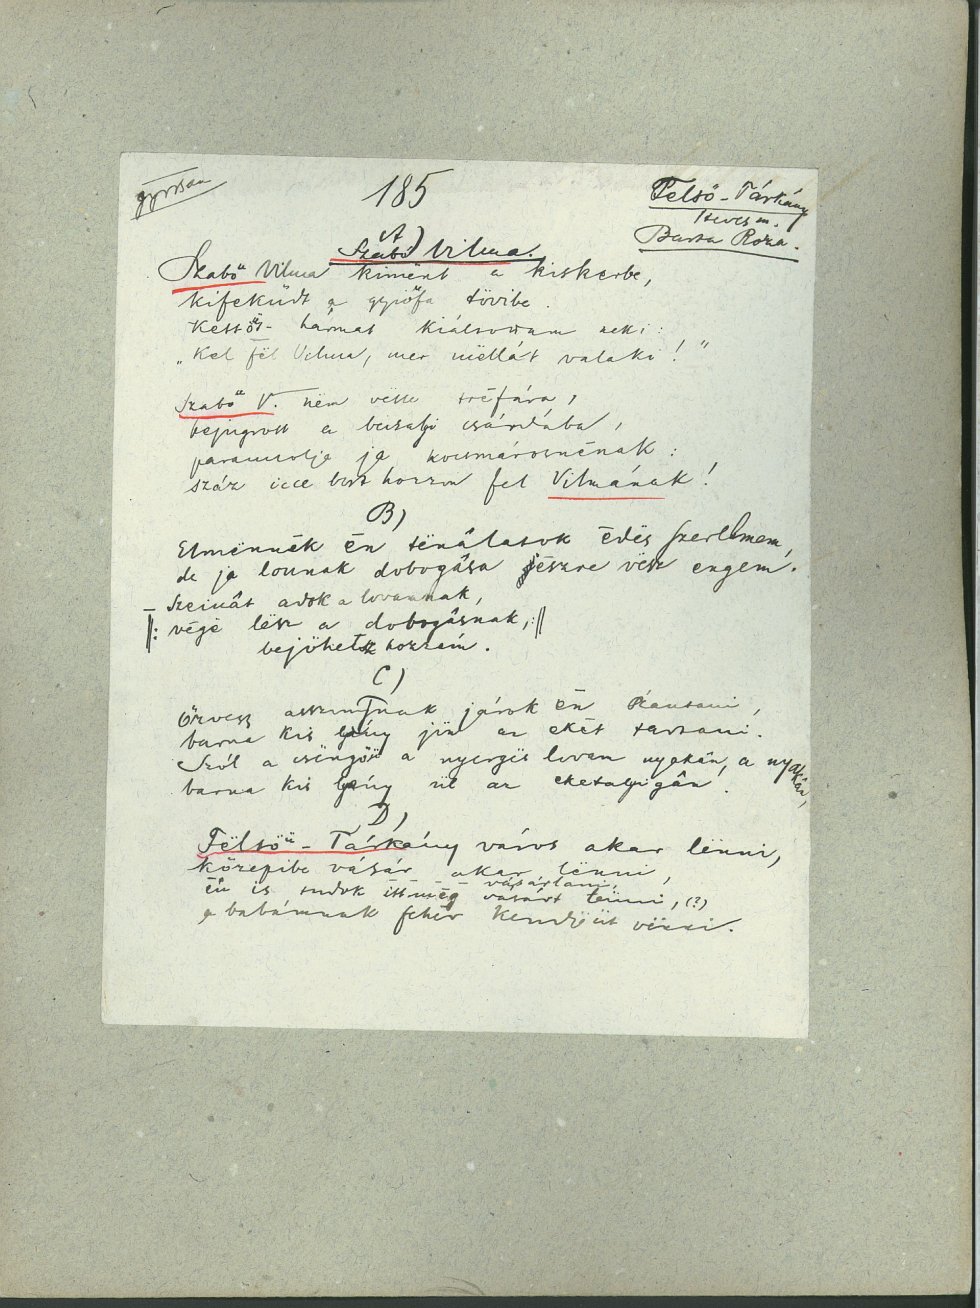 gyorsan
185
Felsö-Tárkány
Heves m.
Barta Róza.
A)
Szabó Vilma.
Szabó Vilma kimënt a kiskerbe,
kifeküdt a gyiófa tövibe.
Kettőt-hármat kiáltottam neki:
„Kel fël Vilma, mer mëllát valaki!"
Szabó V. nëm vëtte tréfára,
bejugrott a csárdába,
parancsolja ja kocsmárosnénak:
száz icce bort hozzon fel Vilmának!
B)
Elmënnék én tënálatok édës szerelmem,
de ja lounak dobogása jészre vësz engem.
Szénát adok a lovamnak,
‖: végë lësz a dobogásnak, :‖
bejöhetsz hozzám.
C)
Özvegy asszonynak járok én szántani,
barna kis lyány jön az ekét tartani.
Szól a csëngőü a nyergës lovam nyakán, a nyakán,
barna kis lyány ül az eketalyigán!
D)
Fëlső-Tárkány város akar lënni,
közepibe vásár akar lënni,
vásárlani
én is tudok itt még vásárt tënni, (?)
a babámnak fehér kendőüt vënni.